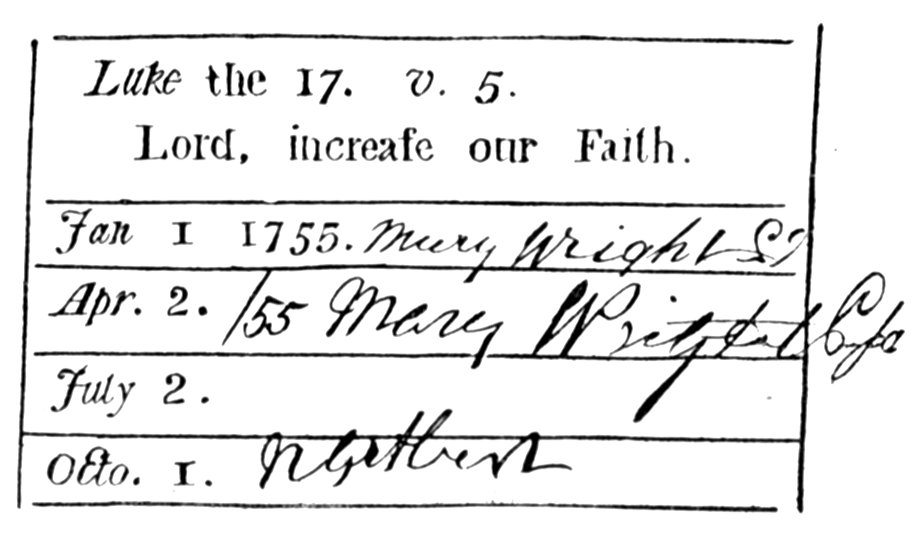 Luke the 17. v. 5.
Lord, increaſe our Faith.
Jan 1 1755. Mary Wright
Apr. 2. /55 Mary Wright
July 2.
Octo. 1.